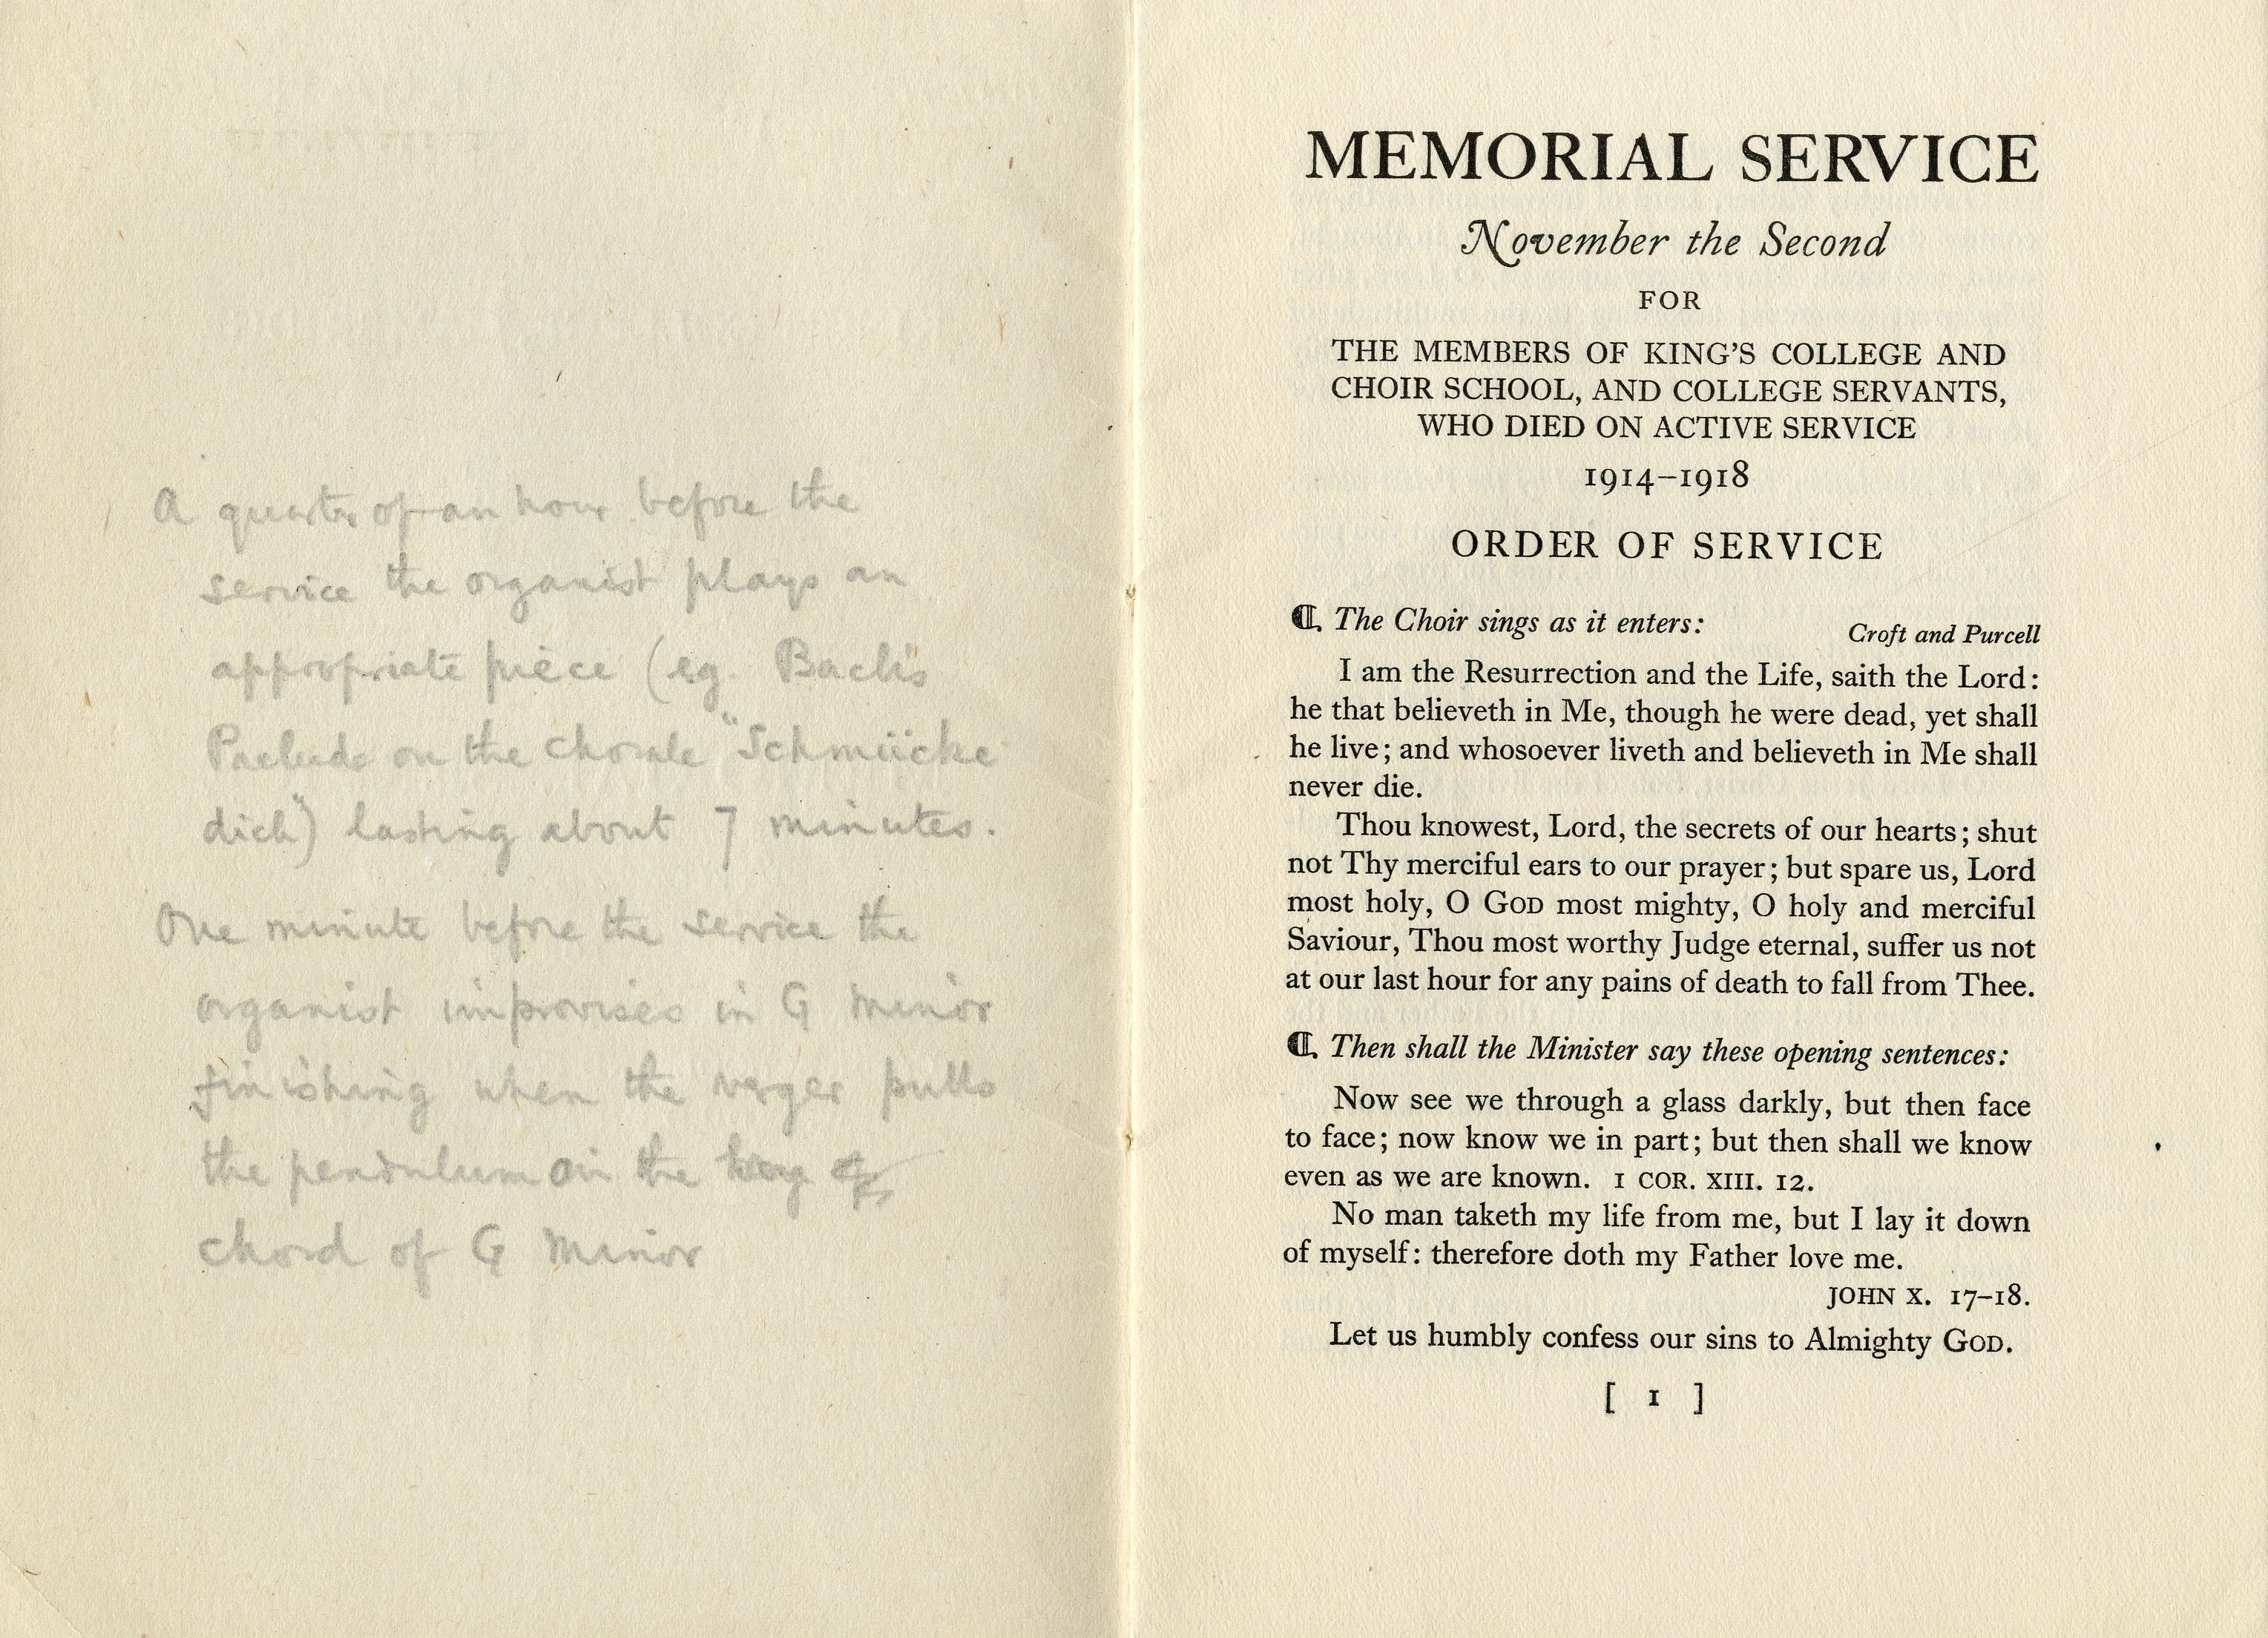 A quarter of an hour before the
service the organist plays an
appropriate piece (eg. Bach's
Prelude on the chorale "Schmücke
dich") lasting about 7 minutes.
One minute before the service the
organist improvises in G minor
finishing when the verger pulls
the pendulum on the key of
chord of G minor
MEMORIAL SERVICE
November the Second
FOR
THE MEMBERS OF KING'S COLLEGE AND
CHOIR SCHOOL, AND COLLEGE SERVANTS,
WHO DIED ON ACTIVE SERVICE
1914–1918
ORDER OF SERVICE
¶ The Choir sings as it enters: Croft and Purcell
I am the Resurrection and the Life, saith the Lord:
he that believeth in Me, though he were dead, yet shall
he live; and whosoever liveth and believeth in Me shall
never die.
Thou knowest, Lord, the secrets of our hearts; shut
not Thy merciful ears to our prayer; but spare us, Lord
most holy, O GOD most mighty, O holy and merciful
Saviour, Thou most worthy Judge eternal, suffer us not
at our last hour for any pains of death to fall from Thee.
¶ Then shall the Minister say these opening sentences:
Now see we through a glass darkly, but then face
to face; now know we in part; but then shall we know
even as we are known. I COR. XIII. 12.
No man taketh my life from me, but I lay it down
of myself: therefore doth my Father love me.
JOHN X. 17–18.
Let us humbly confess our sins to Almighty GOD.
[ I ]